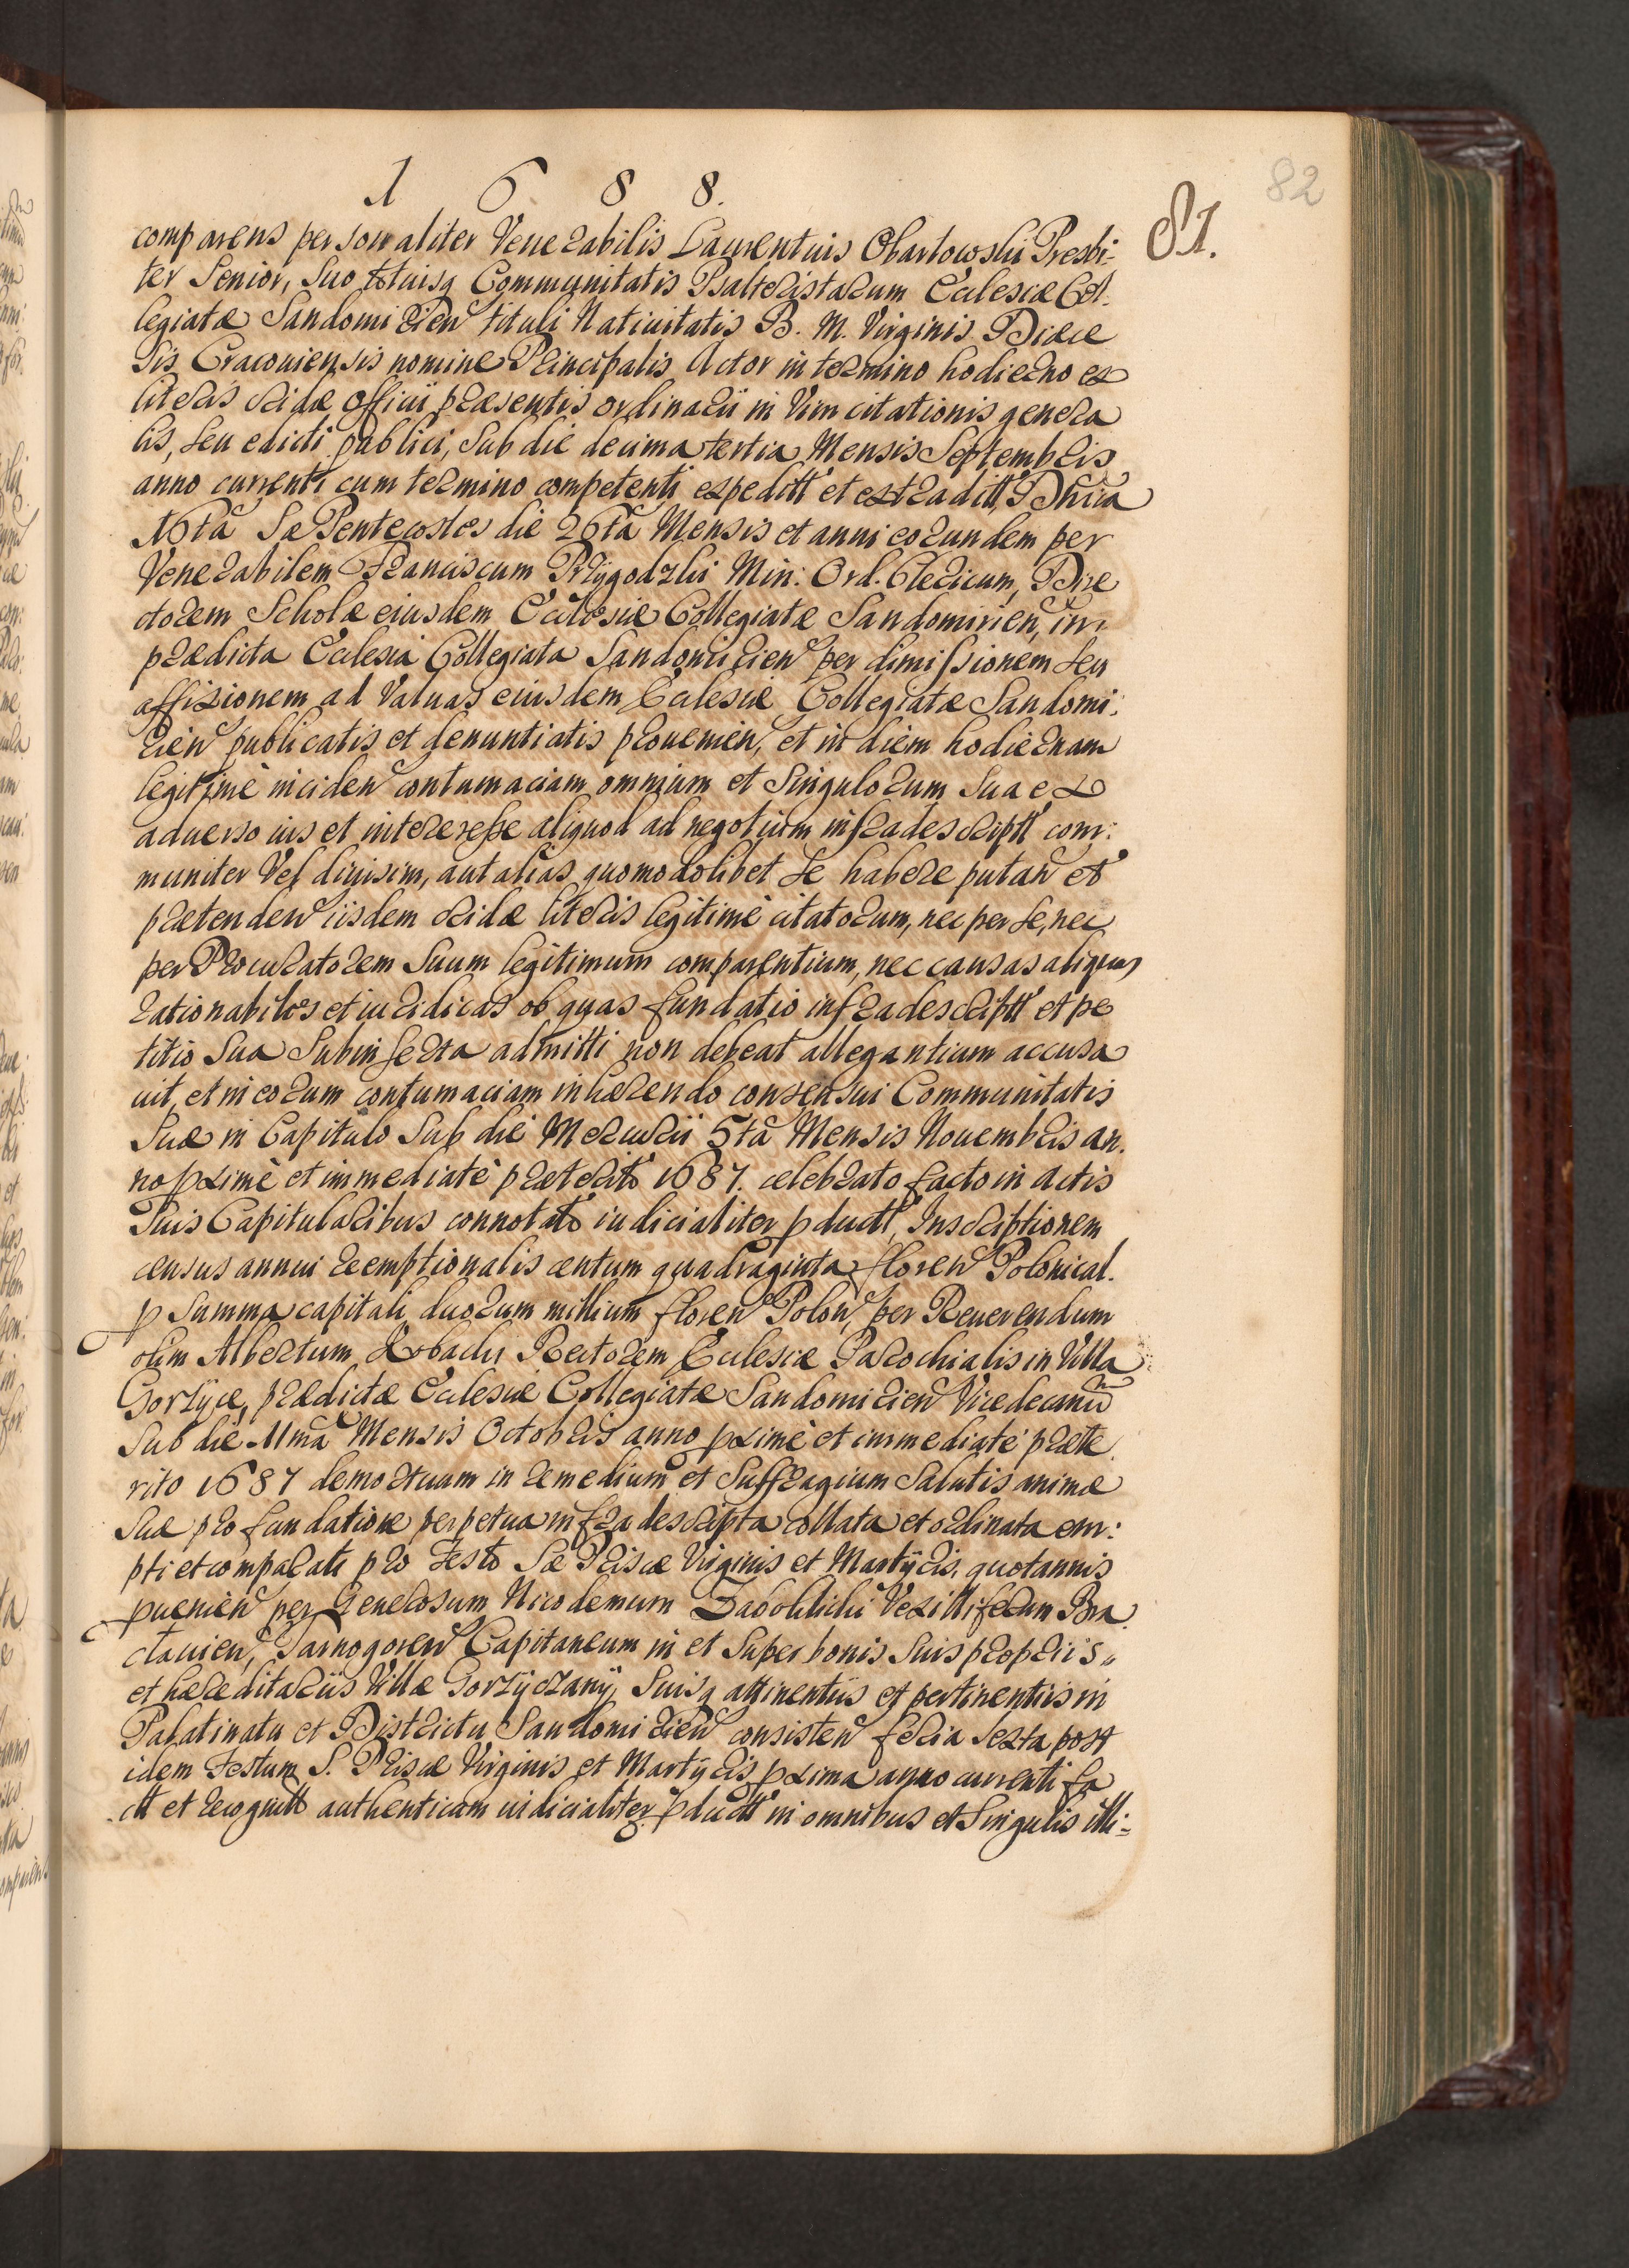 1688.
82
81.
comparens personaliter Venerabilis Laurentius Obartowski Presbi-
ter Senior, suo totiusq Communitatis Psalteristarum Ecclesiæ Col.
legiatæ Sandomirien tituli Natiuitatis B. M. Virginis Diæce
sis Cracouiensis nomine Principalis Actor in termino hodierno ex
literis scidæ officii præsentis ordinarii in vim citationis genera
lis, seu edicti publici, sub die decima tertia Mensis Septembris
anno currenti cum termino competenti expeditt et extraditt, Dnica
16ta Sæ Pentecostes die 26ta Mensis et anni eorundem per
Venerabilem Franciscum Przygodzki Min: Ord. Clericum, Dire
ctorem Scholæ eiusdem Ecclesiæ Collegiatæ Sandomirien, in
prædicta Eclesia Collegiata Sandomirien per dimissionem seu
affixionem ad Valuas eiusdem Eclesiæ Collegiatæ Sandomi:
rien publicatis et denuntiatis prouenien, et in diem hodiernam
legitimè inciden contumaciam omnium et Singulorum sua ex
aduerso ius et interesse aliquod ad negotium infradescriptt com:
muniter Vel diuisim, aut alias quomodolibet se habere putan et
prætenden iisdem scidæ literis legitimè citatorum, nec per se, nec
per Procuratorem suum legitimum comparentium, nec causas aliquas
rationabiles et iuridicas ob quas fundatio infradescriptt et pe
titio sua subinserta admitti non debeat allegantium accusa
uit, et in eorum contumaciam inhærendo consensui Communitatis
suæ in Capitulo sub die Mercurii 5ta Mensis Nouembris an.
no pximè et immediatè præterito 1687. celebrato facto in Actis
suis Capitularibus connotato iudicialiter pductt, Inscriptionem
census annui reemptionalis centum quadraginta floren Polonical.
p summa capitali duorum millium floren Polon, per Reuerendum
olim Albertum Robacki Rectorem Eclesiæ Parochialis in Villa
Gorzyce, prædictæ Eclesiæ Collegiatæ Sandomirien Vicedecanu
sub die 11ma Mensis Octobris anno pximè et immediatè præte.
rito 1687 demortuum in remedium et suffragium salutis animæ
suæ pro fundatione perpetua infradescripta collata et ordinata em:
pti et comparati pro Festo Sæ Priscæ Virginis et Martyris, quotannis
puenien per Generosum Nicodemum Zaboklicki Vexilliferum Bra
clauien, Tarnogoren Capitaneum in et super bonis suis proprii s„
et hæreditariis Villæ Gorzyczany, suisq attinentiis et pertinentiis in
Palatinatu et Districtu Sandomirien consisten feria sexta post
idem Festum S. Priscæ Virginis et Martyris pxima anno currenti fa
ctt et recognitt authenticam iudicialiter pductt in omnibus et Singulis illi-